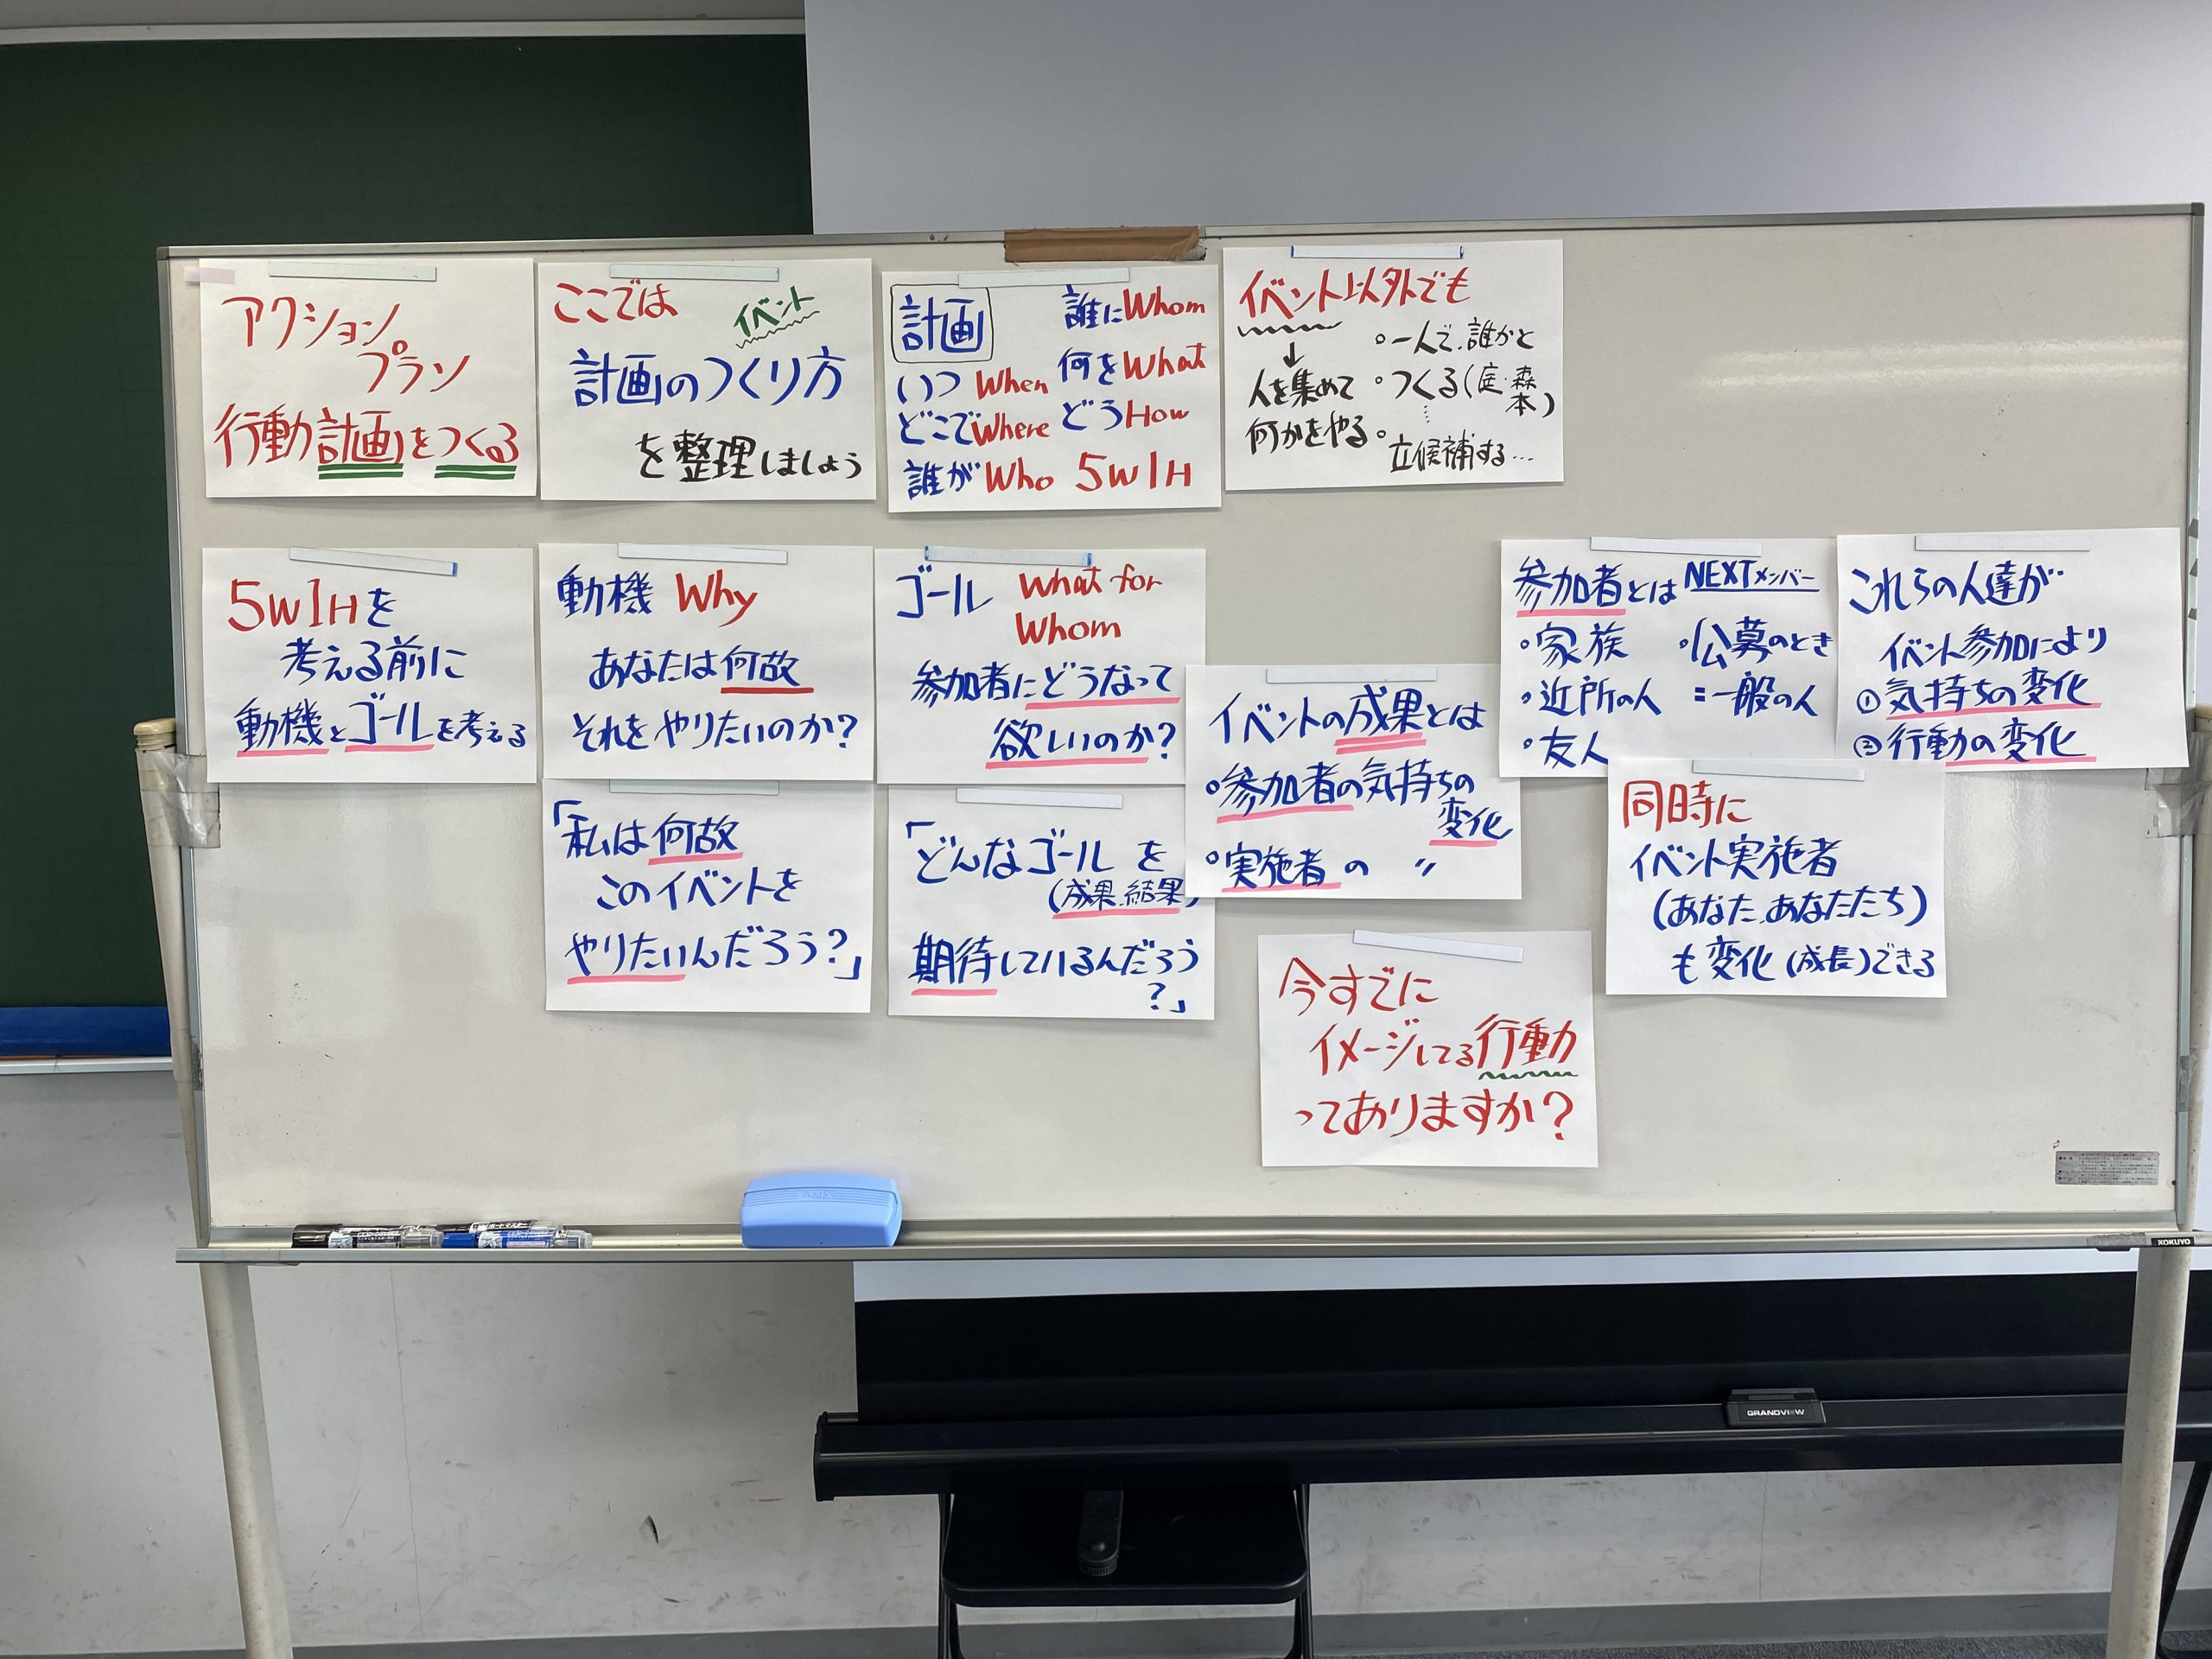 アクション
プラン
行動計画をつくる
ここでは
イベント
計画のつくり方
を整理しましょう
計画
いつ When
どこで Where
誰が Who
誰に Whom
何を What
どう How
5W1H
イベント以外でも
↓
人を集めて
何かをやる
。一人で、誰かと
。つくる(庭・森
本)
。立候補する…
5W1Hを
考える前に
動機とゴールを考える
動機 Why
あなたは何故
それをやりたいのか?
「私は何故
このイベントを
やりたいんだろう?」
ゴール What for
Whom
参加者にどうなって
欲しいのか?
「どんなゴールを
(成果.結果)
期待しているんだろう
?」
イベントの成果とは
。参加者の気持ちの
変化
。実施者の 〃
参加者とは NEXTメンバー
・家族
・近所の人
・友人
・公募のとき
=一般の人
これらの人達が
イベント参加により
①気持ちの変化
②行動の変化
同時に
イベント実施者
(あなた.あなたたち)
も変化(成長)できる
今すでに
イメージしてる行動
ってありますか?
KOKUYO
GRANDVIEW